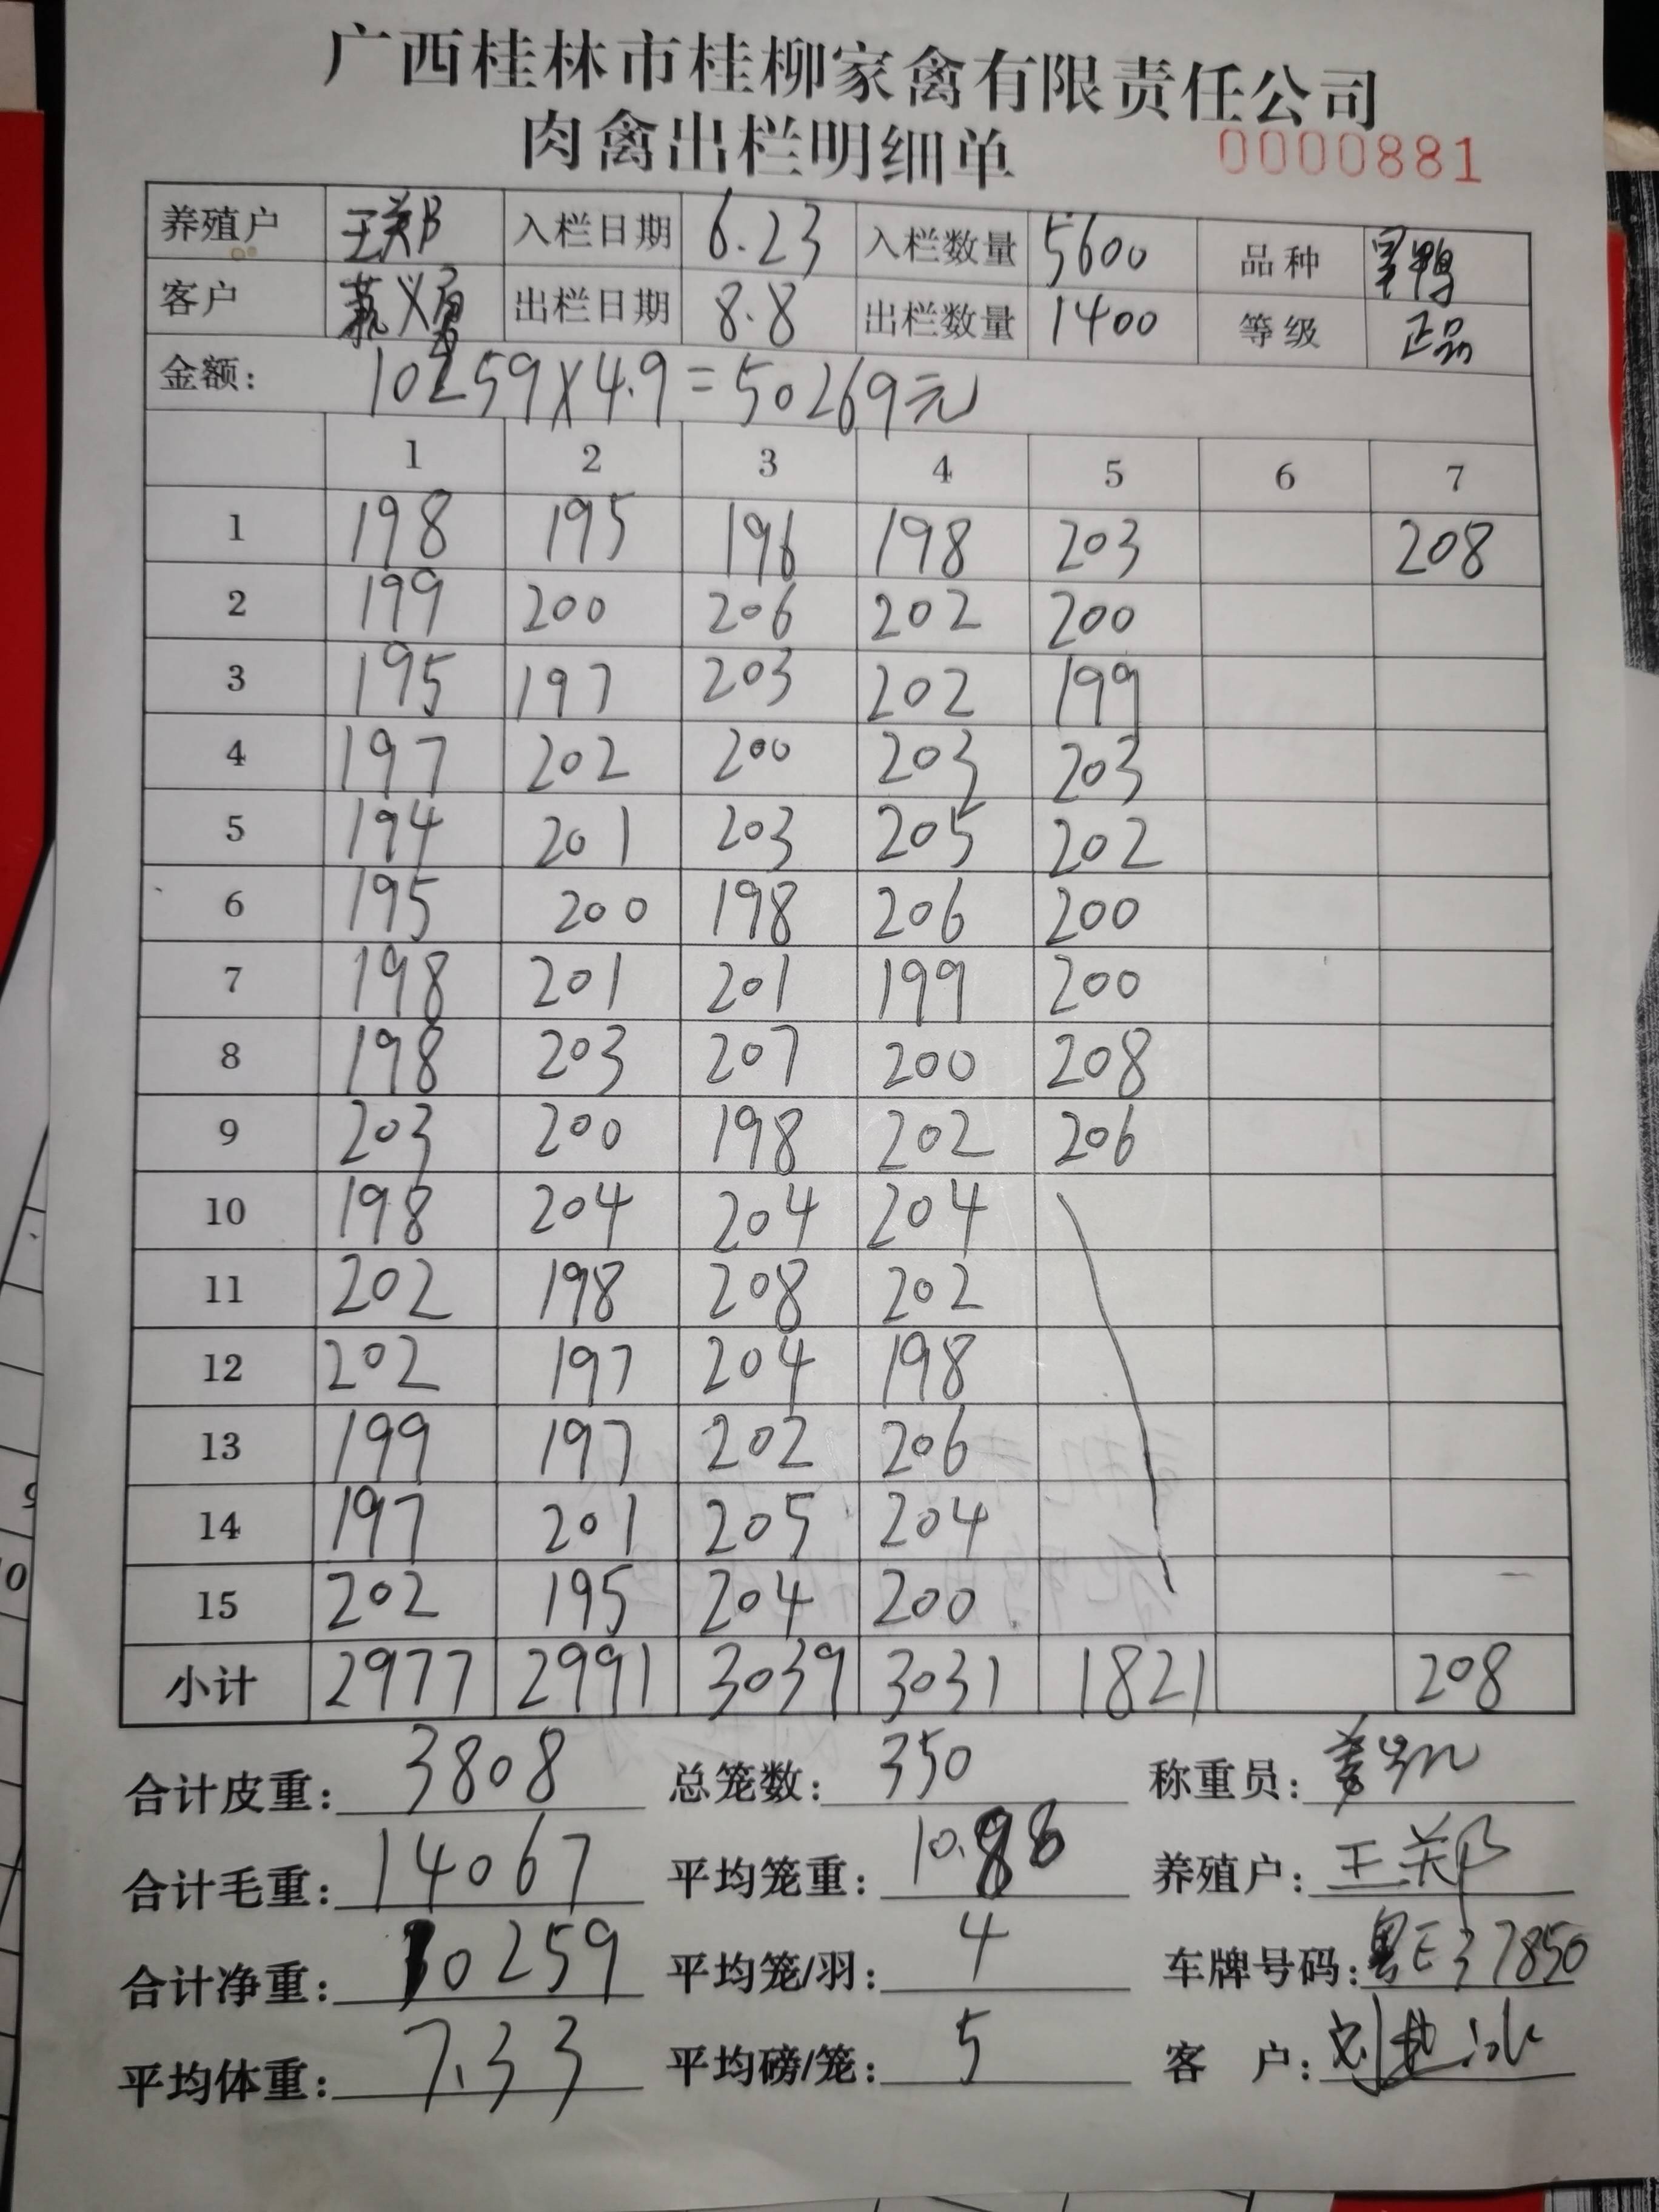 广西桂林市桂柳家禽有限责任公司
肉禽出栏明细单 0000881
养殖户 王郑 入栏日期 6.23 入栏数量 5600 品种 黑鸭
客户 义 出栏日期 8.8 出栏数量 1400 等级 正品
金额: 10259X4.9=50269元
1 2 3 4 5 6 7
1 198 195 196 198 203 208
2 199 200 206 202 200
3 195 197 203 202 199
4 197 202 200 203 203
5 194 201 203 205 202
6 195 200 198 206 200
7 198 201 201 199 200
8 198 203 207 200 208
9 203 200 198 202 206
10 198 204 204 204
11 202 198 208 202
12 202 197 204 198
13 199 197 202 206
14 197 201 205 204
15 202 195 204 200
小计 2977 2991 3039 3031 1821 208
合计皮重: 3808 总笼数: 350 称重员:
合计毛重: 14067 平均笼重: 10.88 养殖户: 王郑
合计净重: 10259 平均笼/羽: 4 车牌号码: 粤E37850
平均体重: 7.33 平均磅/笼: 5 客 户: 刘